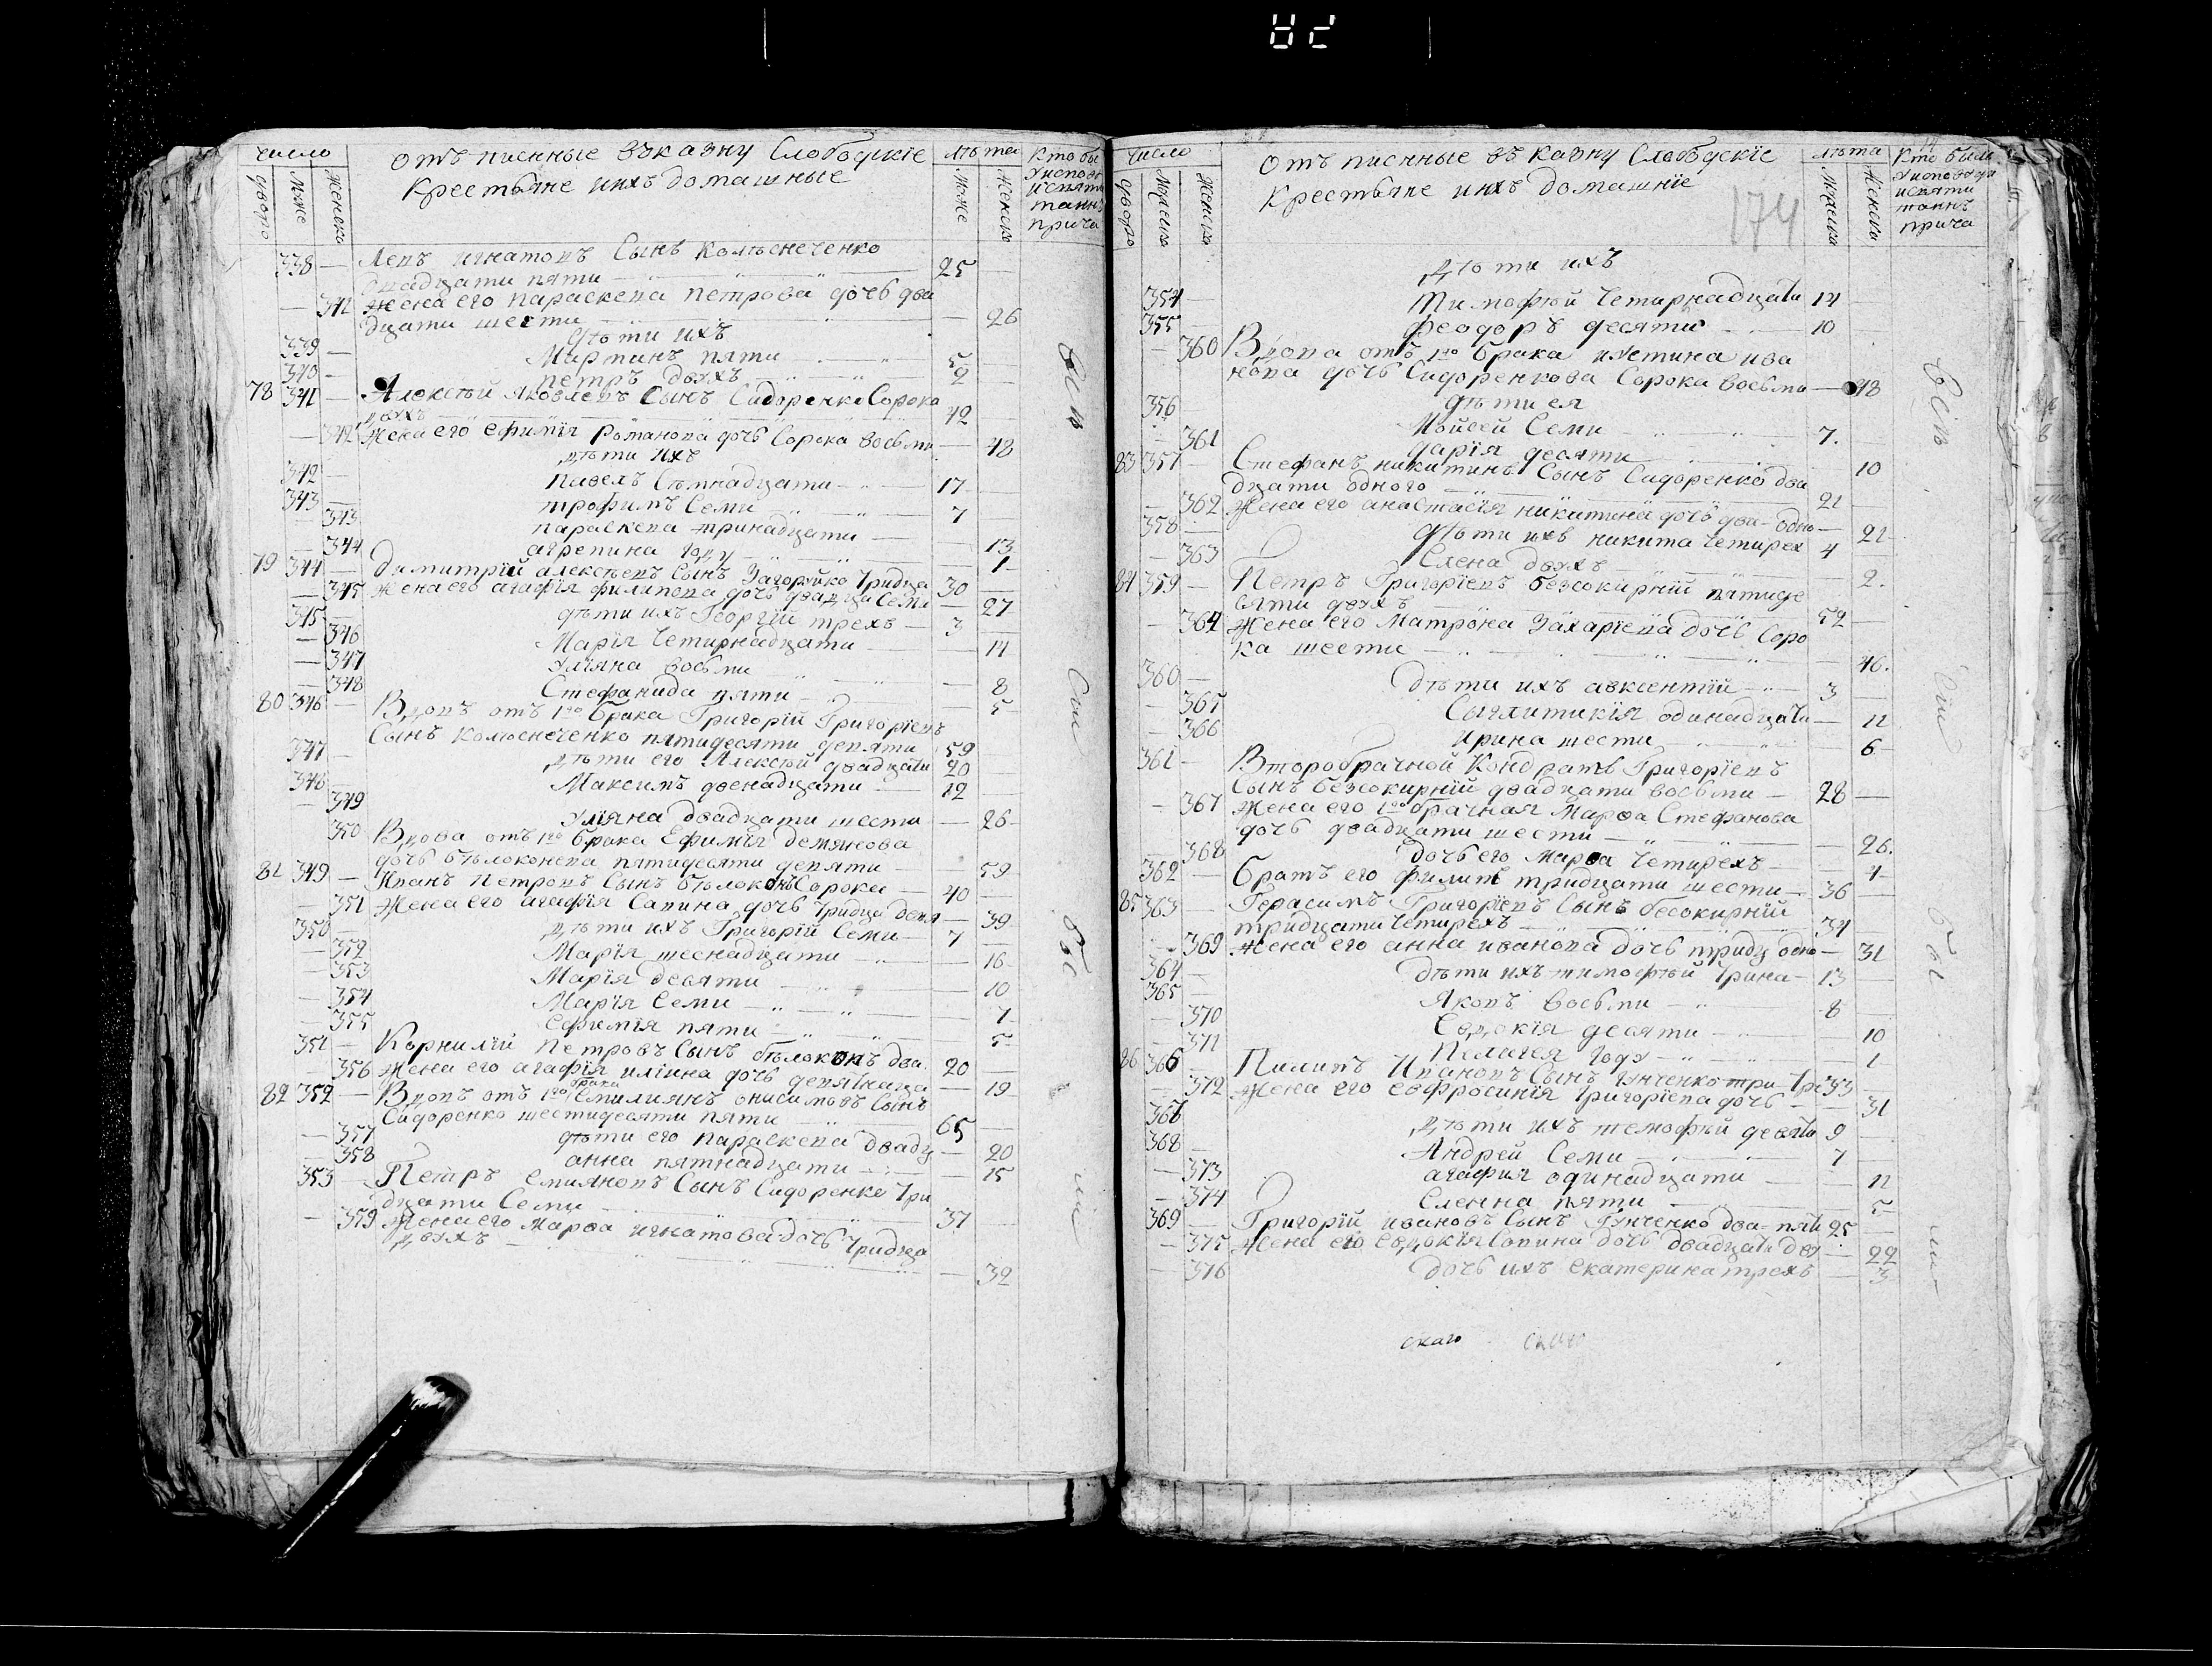 число
двого
Мꙋже
Женско
отъ писнные въ казну Слободскіе
Крестьяне ихъ домашные
лѣта
Мꙋже
Женско
Кто бы
338 — Левъ игнатовъ Сынъ Колѣснеченко
двадцати пяти — 25
— 341 Жена его параскева петрова дочь два
дцати шести — 26
дѣти ихъ
339 — Мартинъ пяти — 5
340 — петръ двухъ — 2
78 341 — Алексѣй Яковлевъ Сынъ Сидоренко Сорока
двухъ — 42
— 342 Жена его ефимія Романова дочь Сорока восьми — 48
дѣти ихъ
342 — павелъ Семнадцати — 17
343 — трофимъ Семи — 7
— 343 параскева тринадцати — 13
— 344 агрепина году — 1
79 344 — димитрій алексѣевъ Сынъ Загоруйко тридца 30
— 345 Жена его агафія филипева дочь двадца Семи — 27
345 — дѣти ихъ Георгій трехъ — 3
— 346 Марія Четирнадцати — 14
— 347 Уліяна восьми — 8
— 348 Стефанида пяти — 5
80 346 — Вдовъ отъ 1го брака Григорій Григоріевъ
Сынъ Колѣснеченко пятидесяти девяти 59
347 — дѣти его Алексѣй двадцати 20
348 — Максимъ двенадцати — 12
— 349 Уліяна двадцати шести — 26
350 Вдова отъ 1го брака Ефимія демянова
дочь бѣлоконева пятидесяти девяти — 59
81 349 — Иванъ Петровъ Сынъ бѣлоконь Сорока — 40
— 351 Жена его агафія Савина дочь тридца девя — 39
350 — дѣти ихъ Григорій Семи — 7
— 352 Марія шеснадцати — 16
— 353 Марія десяти — 10
— 354 Марія Семи — 7
355 ефимія пяти — 5
351 — Корнилій Петровъ Сынъ бѣлоконъ два. 20
— 356 Жена его агафія иліина дочь девятнаца — 19
82 352 — Вдовъ отъ 1го брака Емилиянъ онисимовъ Сынъ
Сидоренко шестидесяти пяти — 65
— 357 дѣти его параскева двадц — 20
— 358 анна пятнадцати — 15
353 — Петръ Емияновъ Сынъ Сидоренко три
дцати Семи — 37
— 359 Жена его Марѳа игнатова дочь тридца
двухъ — 32
число
Женско
отъ писнные въ казну Слободскіе
Крестьяне ихъ домашніе
174
лѣта
Женско
Кто были
дѣти ихъ
354 — Тимофѣй Четирнадцати 14
355 — феодоръ десяти — 10
— 360 Вдова отъ 1го брака ива
нова дочь Сидоренкова Сорока восьми — 48
дѣти ея
356 — Мойсей Семи — 7.
— 361 дарія десяти — 10
83 357 — Стефанъ никитинъ Сынъ Сидоренко два
дцати одного — 21
— 362 Жена его анастасія никитина дочь два- одно — 21
358 — дѣти ихъ никита Четирех 4
— 363 Елена двухъ — 2.
84 359 — Петръ Григоріевъ безсокирній пятиде
сяти двухъ — 52
— 364 Жена его Матрона Захаріева дочь Соро
ка шести — 46.
360 — дѣти ихъ авксентій — 3
— 365 Сыглитикія одинадцати — 11
— 366 Ирина шести — 6
361 — Второбрачной Кондратъ Григоріевъ
Сынъ безсокирній двадцати восьми — 28
— 367 Жена его 1гобрачная Марѳа Стефанова
дочь двадцати шести — 26.
— 368 дочь его Марѳа Четирехъ — 4
362 — братъ его филипъ тридцати шести — 36
85 363 — Герасимъ Григоріевъ Сынъ бесокирній
тридцати Четирехъ — 34
— 369 Жена его анна иванова дочь тридц одно — 31
364 — дѣти ихъ тимофѣй Трина — 13
365 — Яковъ восьми — 8
— 370 Евдокія десяти — 10
— 371 Пелагея году — 1
86 366 — Пилипъ Ивановъ Сынъ Гунченко три- тре 33
— 372 Жена его евфросинія Григоріева дочь — 31
367 — дѣти ихъ темофѣй девяти 9
368 — Андрей Семи — 7
— 373 агафия одинадцати — 11
— 374 Еленна пяти — 5
369 — Григорій ивановъ Сынъ Гунченко два- пяти 25
— 375 Жена его Евдокія Савина дочь двадцати двух — 22
— 376 дочь ихъ екатерина трехъ — 3
скаго скаго